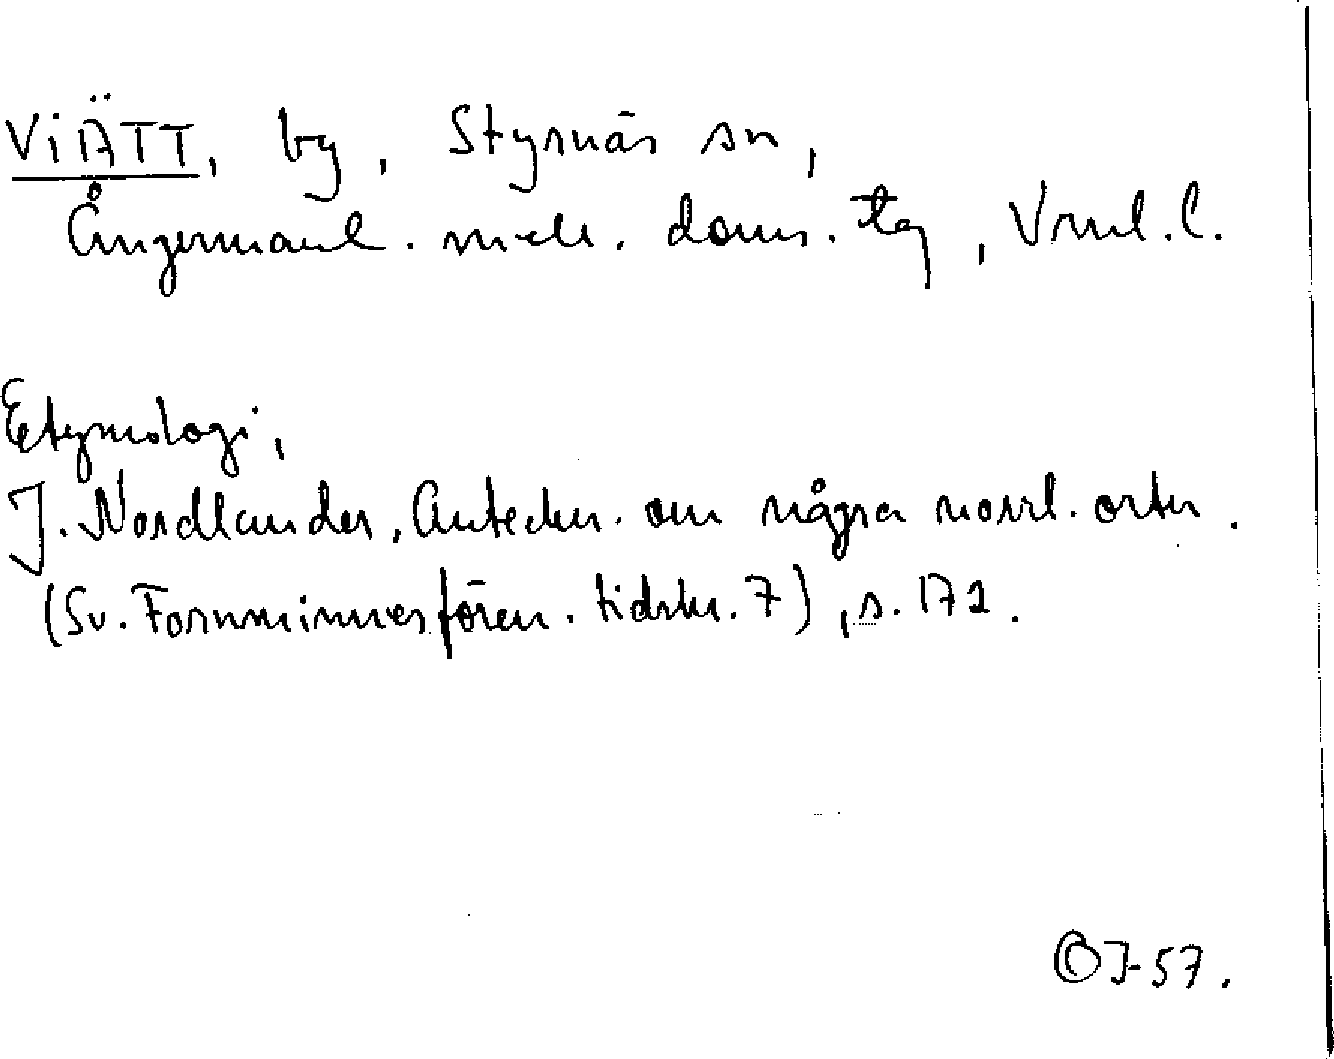 VIÄTT, by, Styrnäs sn,
Ångermanl. mell. doms. tg, Vrnl. l.
Etymologi,
J. Nordlander, Anteckn. om några norrl. ortn.
(Sv. Fornminnesfören. tidskr. 7), s. 172.
OJ-57.